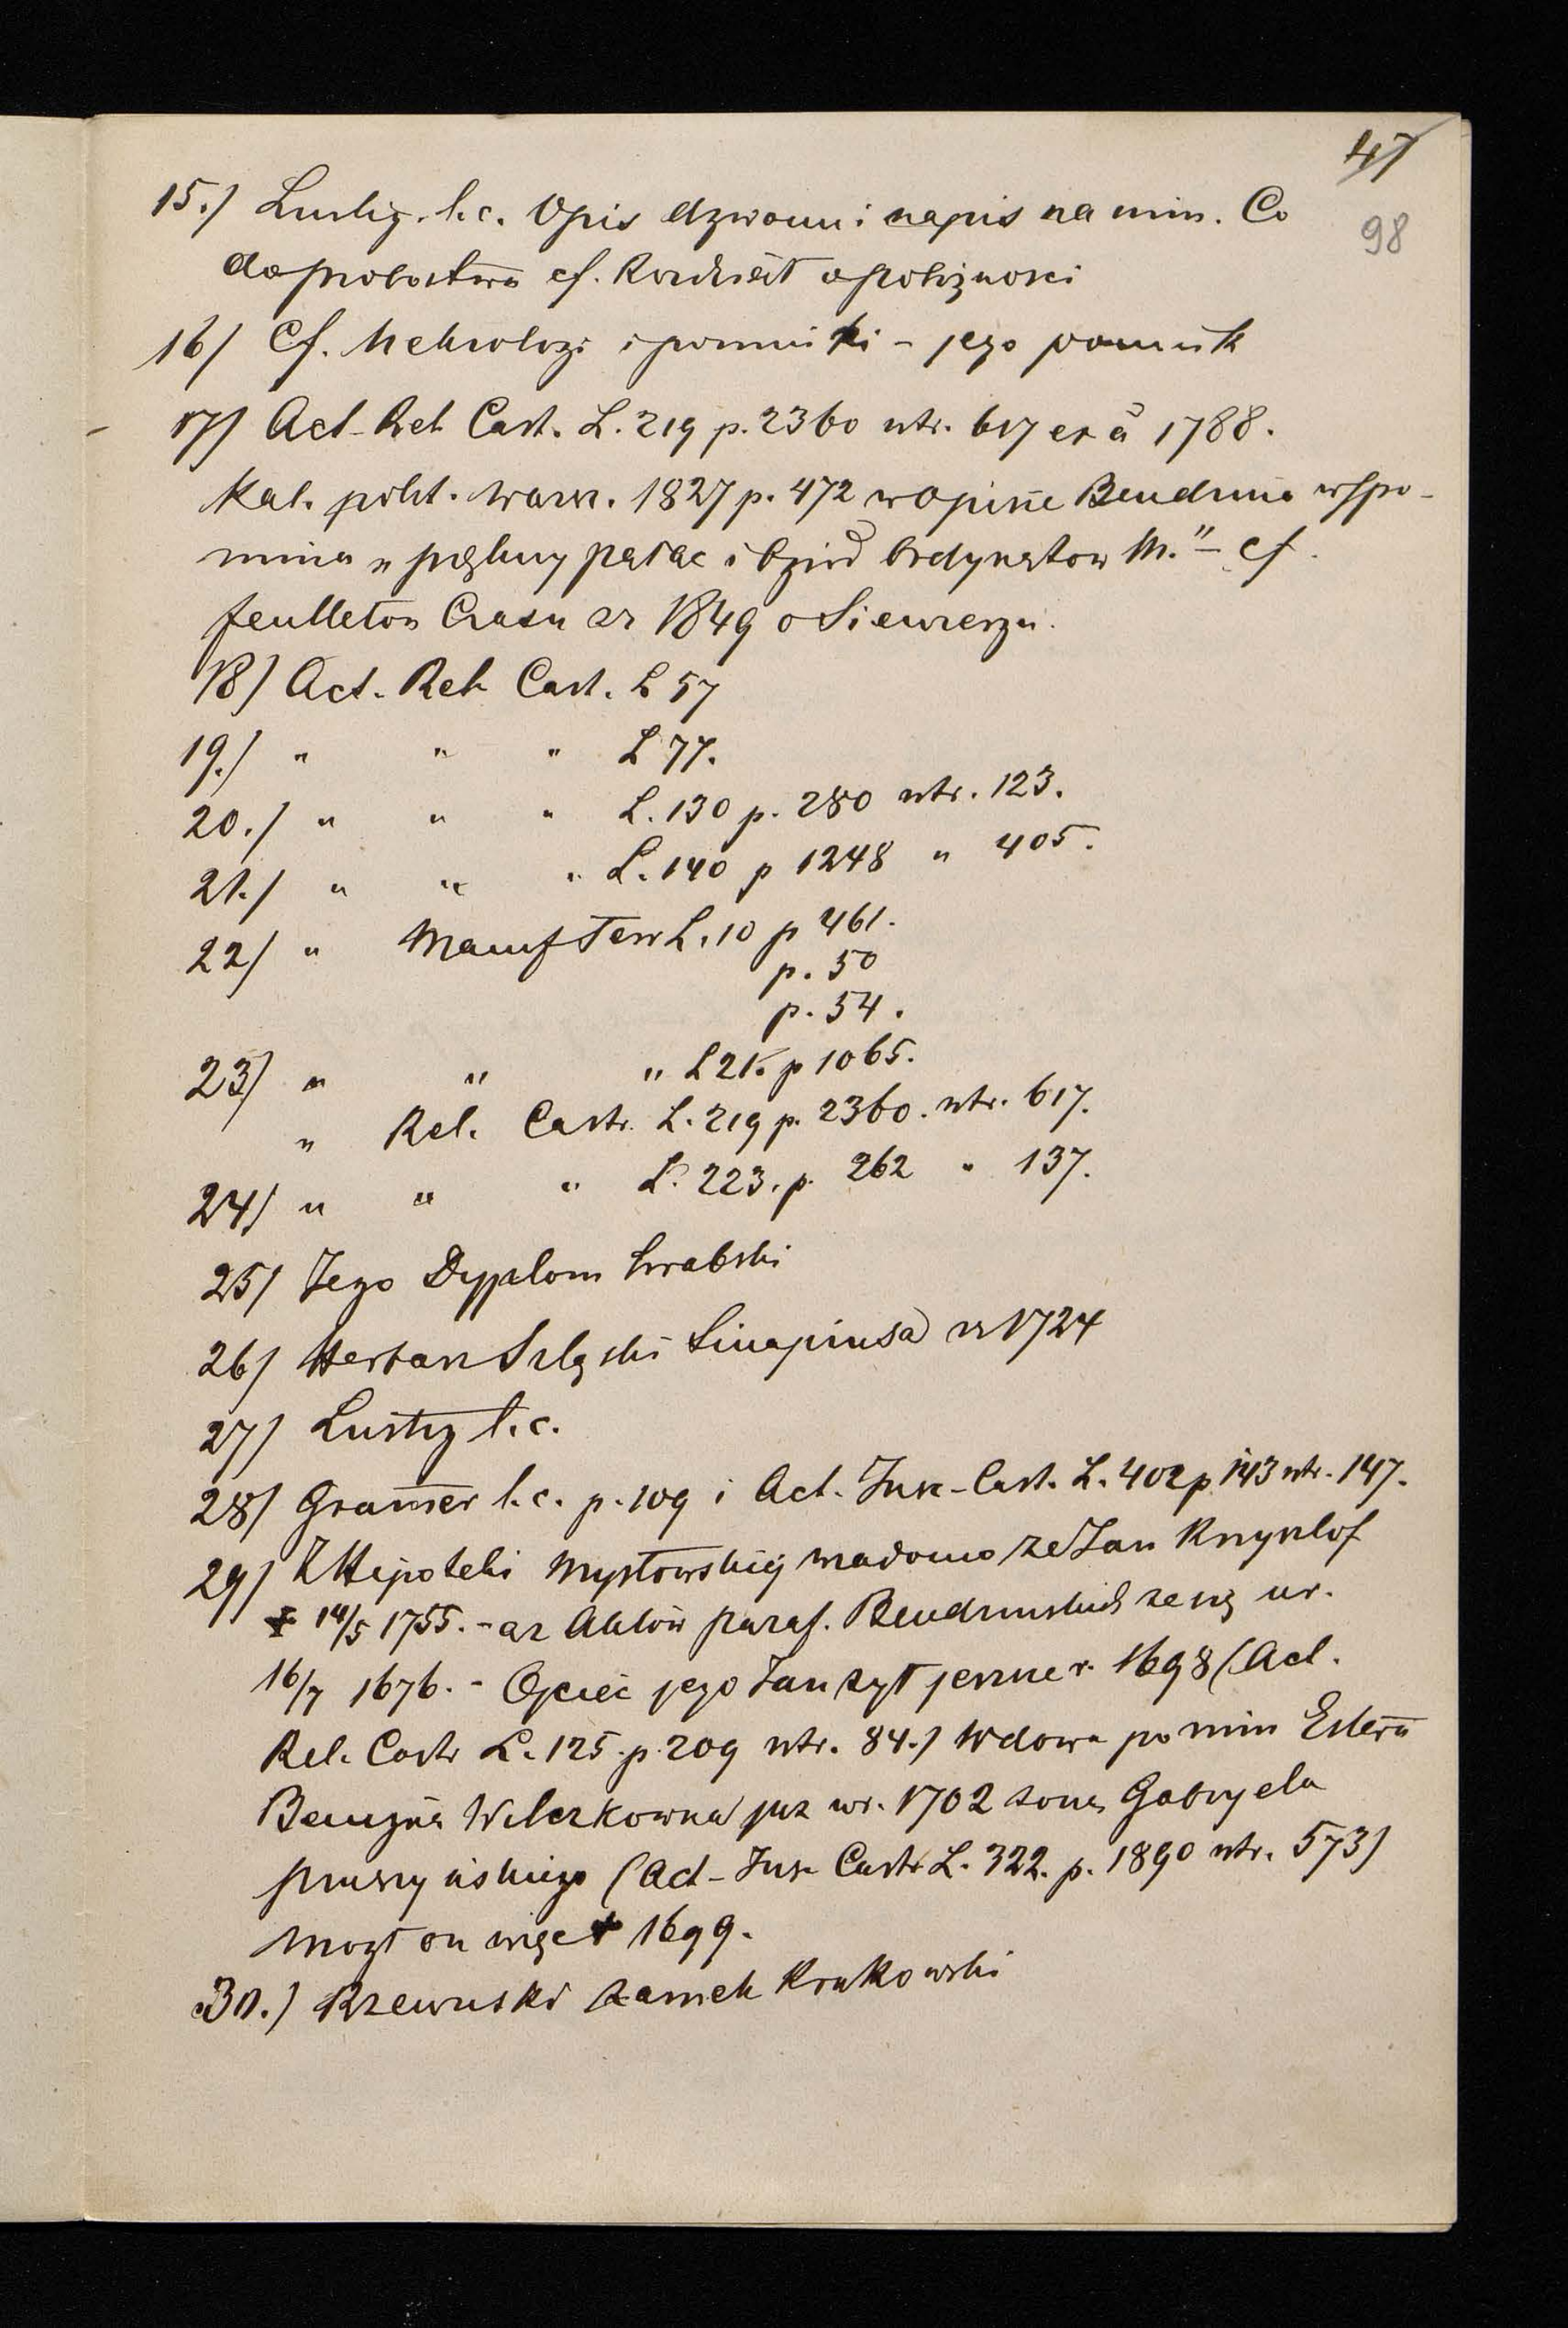 47
98
15.) Lustig. l.c. Opis dzwonu i napis na nim. Co
do probostwa cf. Rozdział o pobożności
16) Cf. Nekrologi i pomniki – jego pomnik
17) Act. Rel. Cast. L. 219 p. 2360 ntr. 617 ex a 1788.
Kal. polit. warsz. 1827 p. 472 w opisie Bendzina wspo-
mina „piękny pałac i ogród Ordynatow M." – cf.
feulleton Czasu zr 1849 o Siewierzu.
18) Act. Rel. Cast. L 57
19.) " " " L 77.
20.) " " " L. 130 p. 280 ntr. 123.
21.) " " " L. 140 p 1248 " 405.
22) " Manif Terr L. 10 p 461.
p. 50
p. 54.
23) " " " L 21. p 1065.
" Rel. Castr. L. 219 p. 2360. ntr. 617.
24) " " " L. 223. p. 262 " 137.
25) Jego Dyplom hrabski
26) Herbarz Szląski Sinapiusa zr 1724
27) Lustig l.c.
28) Gramer l.c. p. 109 i Act. Insc. Cast. L. 402 p 143 ntr. 147.
29) Z Hipoteki Mysłowskiej wiadomo ze Jan Krzysztof
+ 14/5 1755. – a z Aktów paraf. Bendzinskich ze się ur.
16/7 1676. – Ojciec jego Jan zył jeszcze r. 1698 (Act.
Rel. Castr L. 125. p. 209 ntr. 84.) Wdowa po nim Estera
Benigna Wilczkowna juz w r. 1702 zona Gabryela
Pruszyńskiego (Act. Insc. Castr L. 322. p. 1890 ntr. 573)
mógł on więc + 1699.
30.) Rzewuski Zamek Krakowski